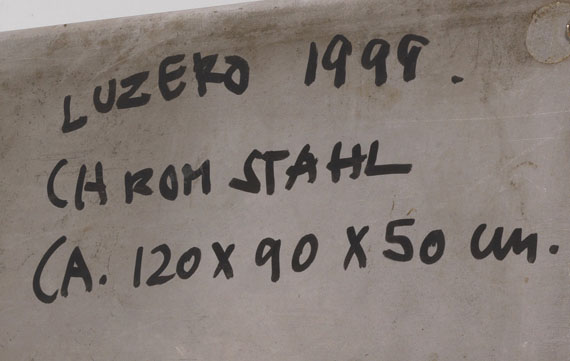 LUZERO 1999.
CHROM STAHL
CA. 120 X 90 X 50 cm.